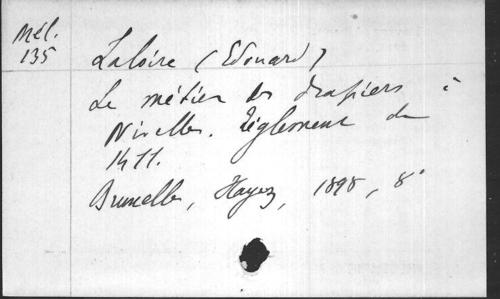 Mél.
135
Laloire (Edouard)
Le métier des drapiers à
Nivelles. Règlement de
1411.
Bruxelles, Hayez, 1898, 8°